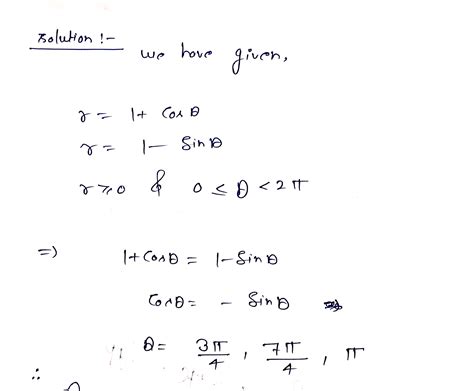 Solution :-
we have given,
r = 1 + Cos θ
r = 1 - Sin θ
r ≥ 0 & 0 ≤ θ < 2π
=> 1 + Cos θ = 1 - Sin θ
Cos θ = - Sin θ
θ = 3π/4 , 7π/4 , π
∴